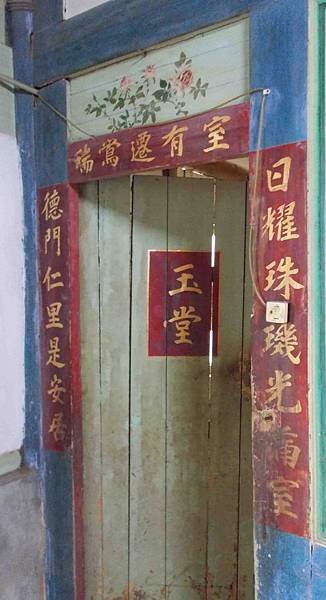 室有遷鶯瑞
日耀珠璣光滿室
德門仁里是安居
玉堂